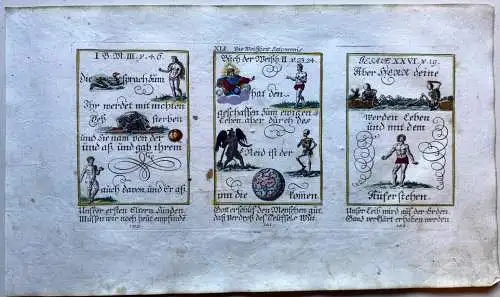 I B. M. III. v. 4. 6.
die sprach zum
Ihr werdet mit nichten
deß sterben
und die nam von der
und aß und gab ihrem
auch davon und Er aß
Unsere ersten Eltern sünden
Müssen wir noch heut empfinden
XLI. Die Weisheit Salomonis
Buch der Weish. II v. 23. 24.
hat den
geschaffen zum ewigen
Leben, aber durch des
Neid ist der
in die komen
Gott erschuf den Menschen gut
daß verdroß des Teuffels Wut.
IESAIÆ XXVI. v. 19.
Aber HERR deine
werden Leben
und mit dem
Aufer stehen.
Unser Leib wird auß der Erden
Gantz verklärt erhaben werden